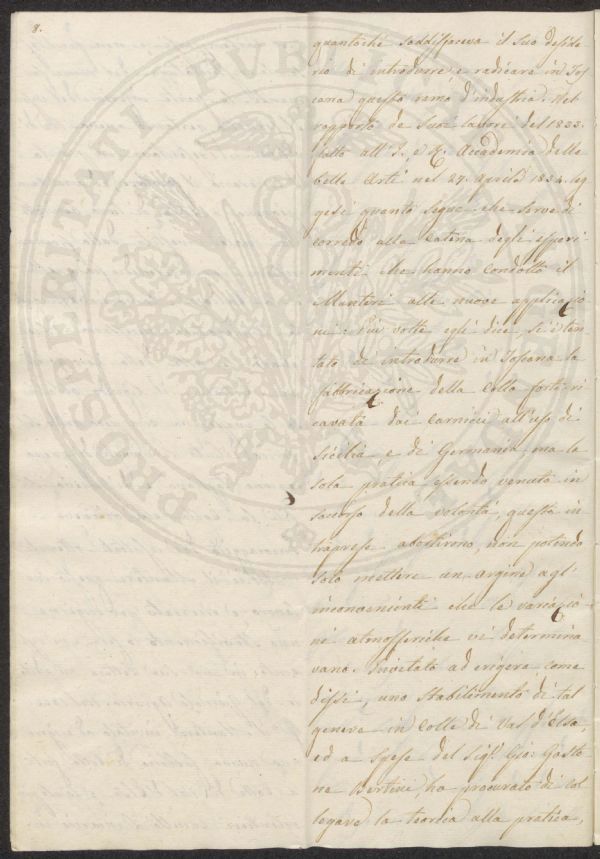 8.
quantochè soddisfareva il suo deside
rio di introdurre, e radicare in Tos
cana questo ramo d'industria. Nel
rapporto de suoi lavori del 1833.
fatto all' I. e R. Accademia delle
belle Arti nel 27. Aprile 1834. leg
gesi quanto segue che serve di
corredo alla Catena degli esperi
menti che hanno condotto il
Manteri alle nuove applicazio
ni: Più volte egli dice, si è ten
tato di introdurre in Toscana la
fabbricazione della Colla forte ri
cavata dai Carnicci all'uso di
Sicilia, e di Germania ma la
sola pratica essendo venuta in
soccorso della volontà, queste in
traprese abortirono, non potendo
solo mettere un argine agl'
inconvenienti che le variazio
ni atmosferiche vi determina
vano. Invitato ad erigere come
dissi, uno stabilimento di tal
genere in Colle di Val d'Elsa,
ed a spese del Sigr. Gio. Gasto
ne Bertini, ho procurato di col
legare la teorica alla pratica,
PROSPERITATI PUBLICAE